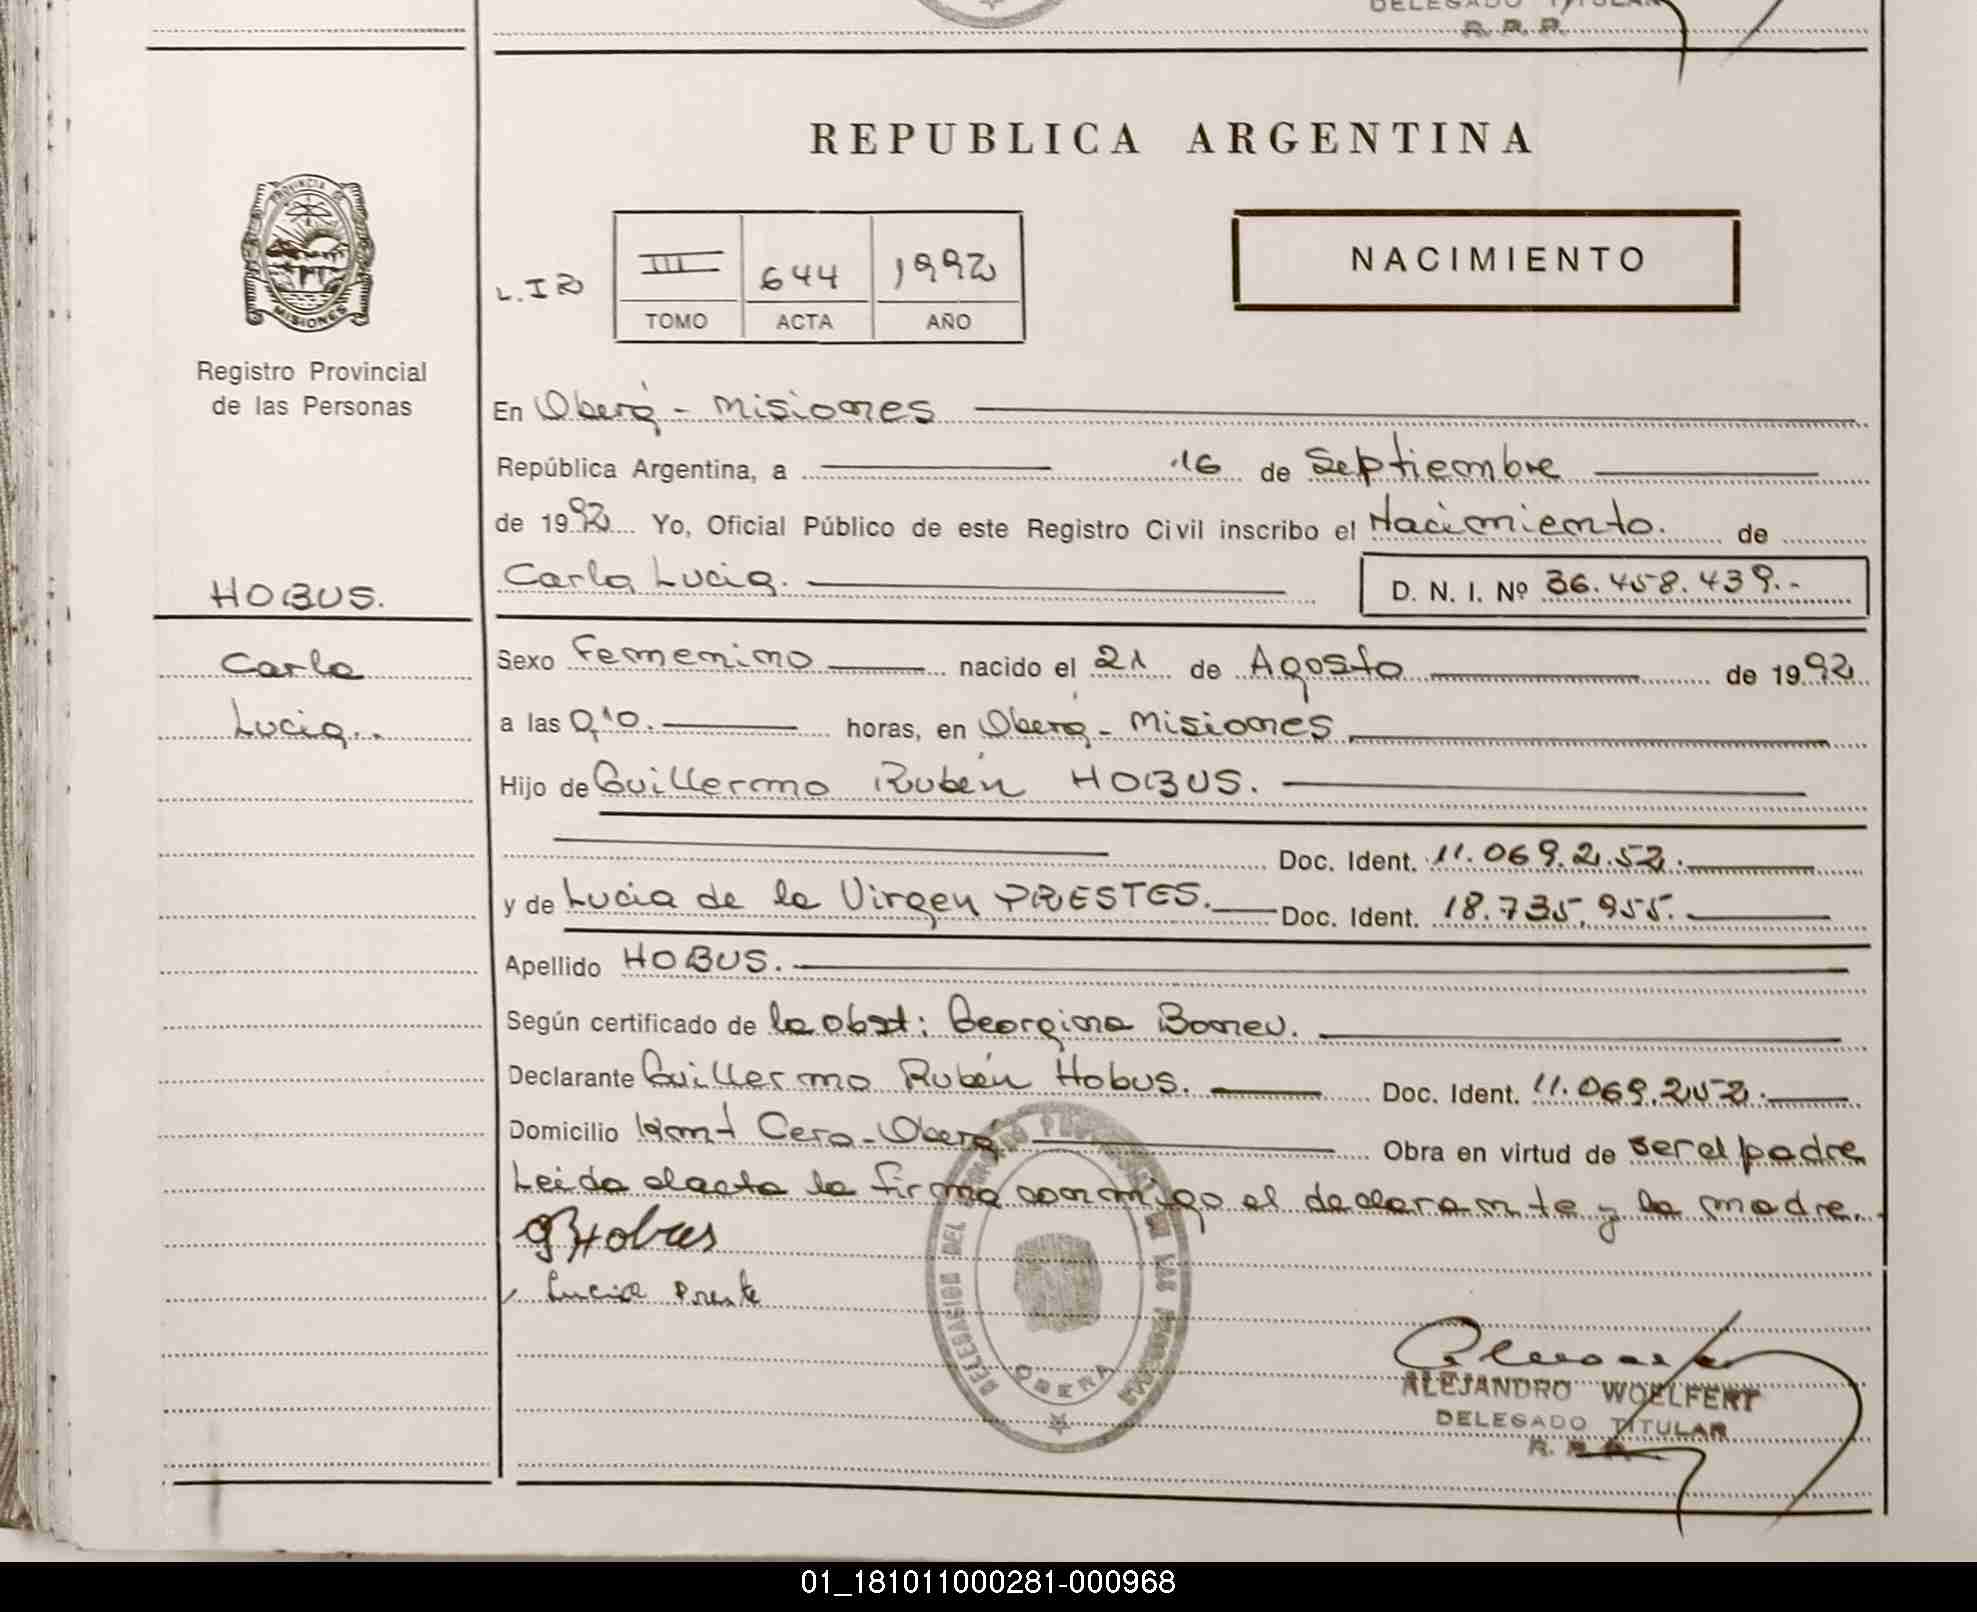 DELEGADO TITULAR
R. P. P.
REPUBLICA ARGENTINA
PROVINCIA DE
MISIONES
NACIMIENTO
L.I2
III 644 1992
TOMO ACTA AÑO
Registro Provincial
de las Personas
En Oberá - Misiones
República Argentina, a 16 de Septiembre
de 1992 Yo, Oficial Público de este Registro Civil inscribo el Nacimiento. de
HOBUS.
Carla Lucia. D. N. I. Nº 36.458.439.-
Carla
Lucia..
Sexo Femenino nacido el 21 de Agosto de 1992
a las 0,10. horas, en Oberá - Misiones
Hijo de Guillermo Rubén HOBUS.
Doc. Ident. 11.069.252.
y de Lucia de la Virgen PRESTES. Doc. Ident. 18.735.955.
Apellido HOBUS.
Según certificado de la obst: Georgina
Declarante Guillermo Rubén Hobus. Doc. Ident. 11.069.252.
Domicilio Cero - Oberá Obra en virtud de ser el padre
Leida el acta la firma conmigo el declarante y la madre.
GHobus
Lucia
DELEGACION DEL REGISTRO PROVINCIAL DE LAS PERSONAS
OBERA
ALEJANDRO WOELFERT
DELEGADO TITULAR
R. P. P.
01_181011000281-000968